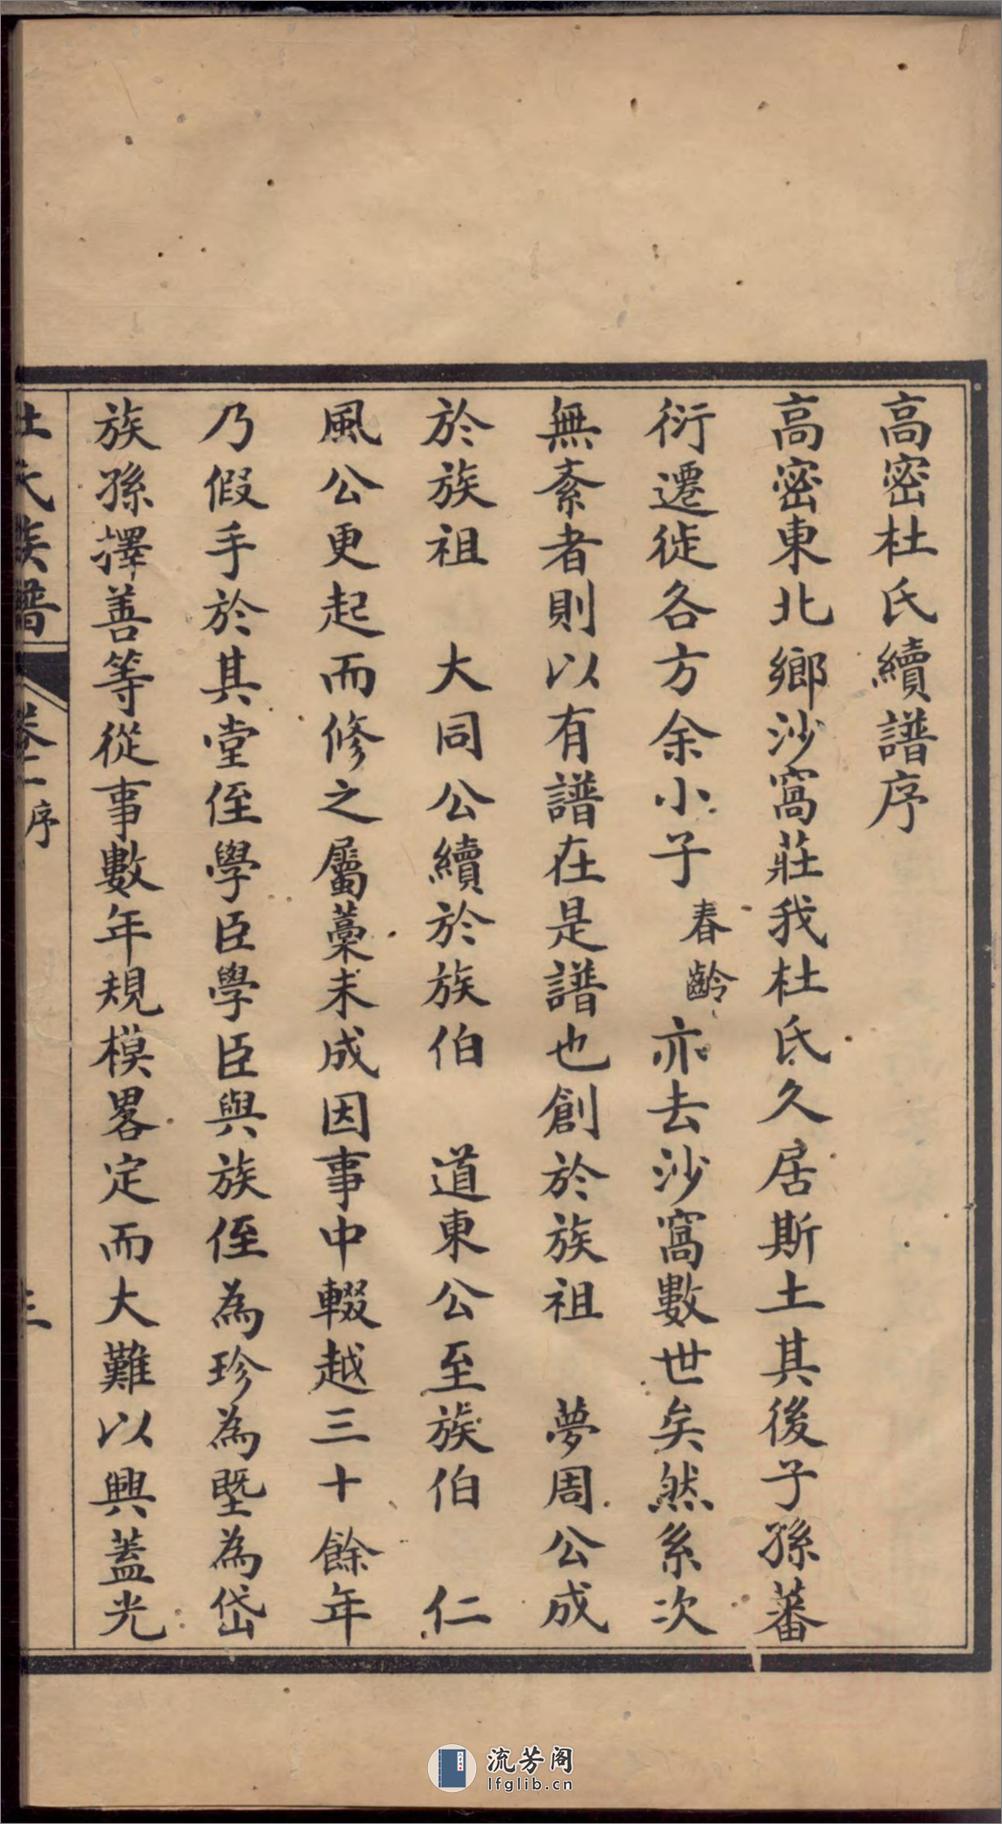 高密杜氏續譜序
高密東北鄉沙窩莊我杜氏久居斯土其後子孫蕃
衍遷徙各方余小子春齡亦去沙窩數世矣然系次
無紊者則以有譜在是譜也創於族祖　夢周公成
於族祖　大同公續於族伯　道東公至族伯　仁
風公更起而修之屬藁未成因事中輟越三十餘年
乃假手於其堂侄學臣學臣與族侄為珍為塈為岱
族孫擇善等從事數年規模畧定而大難以興蓋光
杜氏族譜　卷二序　三
流芳阁
lfglib.cn